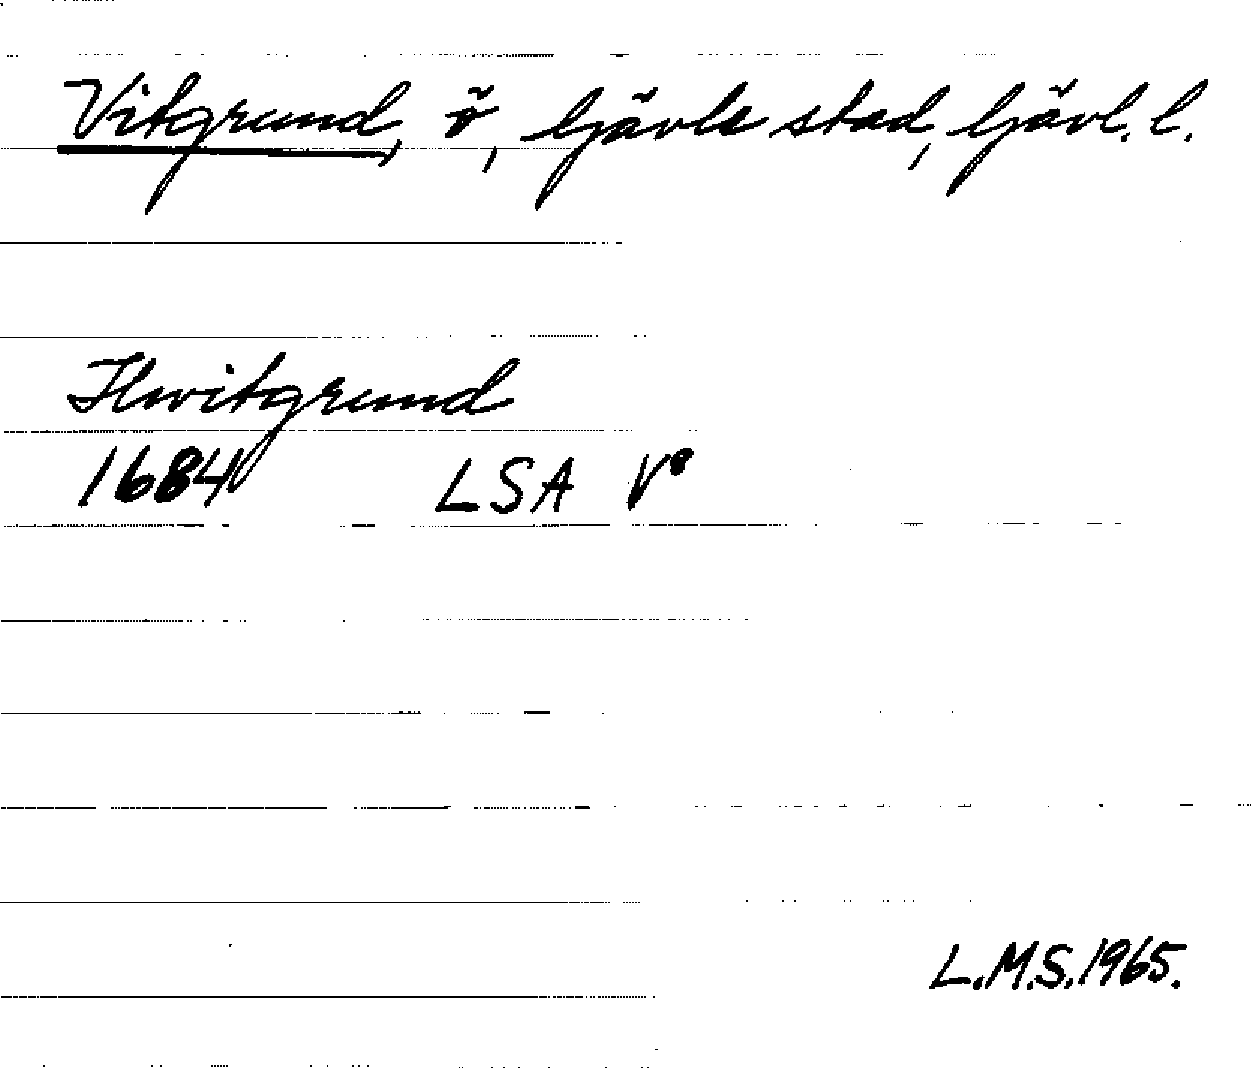 Vitgrund, ö, Gävle stad, Gävl. l.
Hwitgrund
1684 LSA V⁸
L.M.S. 1965.